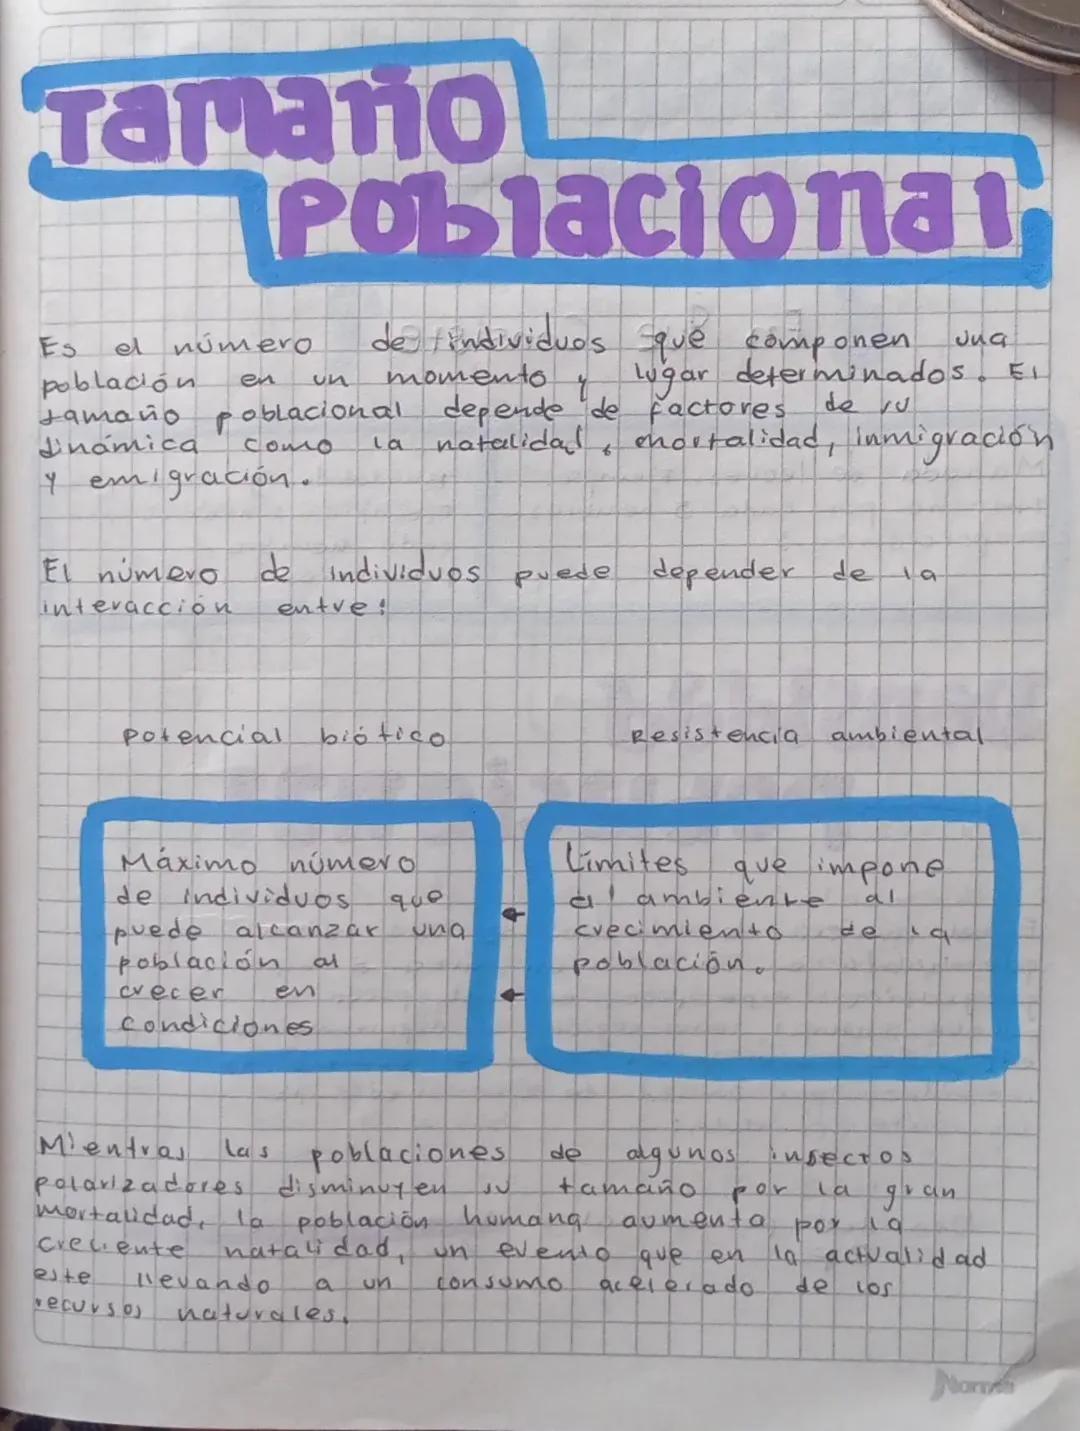 Tamaño
Poblacional
Es el número de individuos que componen una
población en un momento y lugar determinados. El
tamaño poblacional depende de factores de su
dinámica como la natalidad, mortalidad, inmigración
y emigración.
El número de individuos puede depender de la
interacción entre:
Potencial biótico
Resistencia ambiental
Máximo número
de individuos que
puede alcanzar una
población al
crecer en
condiciones
Límites que impone
el ambiente al
crecimiento de la
población.
Mientras las poblaciones de algunos insectos
polarizadores disminuyen su tamaño por la gran
mortalidad, la población humana aumenta por la
creciente natalidad, un evento que en la actualidad
este llevando a un consumo acelerado de los
recursos naturales.
Norma